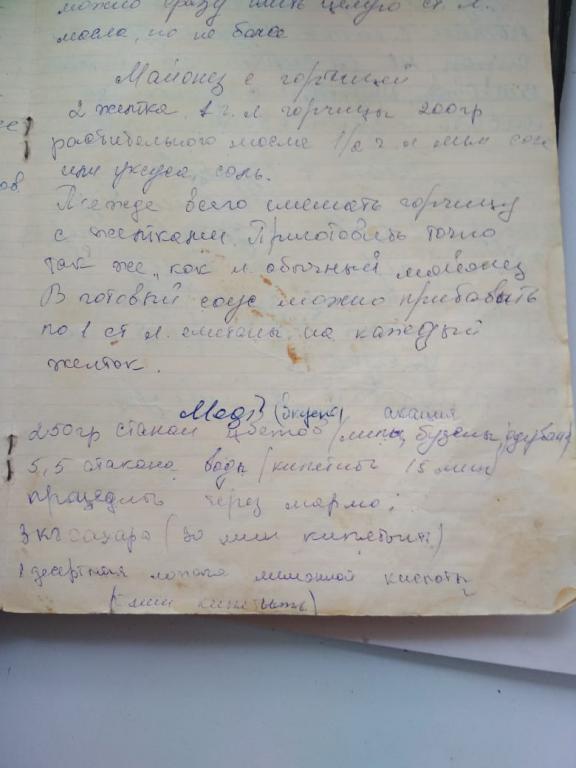 можно сразу лить целую ст. л.
масла, но не более
Майонез с горчицей
2 желтка, 1 ч. л горчицы 200гр
растительного масла 1/2 ч л лим сок
или уксуса, соль.
Прежде всего смешать горчицу
с желтками. Приготовить точно
так же, как и обычный майонез
В готовый соус можно прибавить
по 1 ст л. сметаны на каждый
желток.
Мёд (вкусн) акация
250гр стакан цветов (липы, бузины, одуванч
5,5 стакана воды (кипятить 15 мин)
процедить через марлю;
3 кг сахара (30 мин кипятить)
1 десертная ложка лимонной кислоты
мин кипятить)